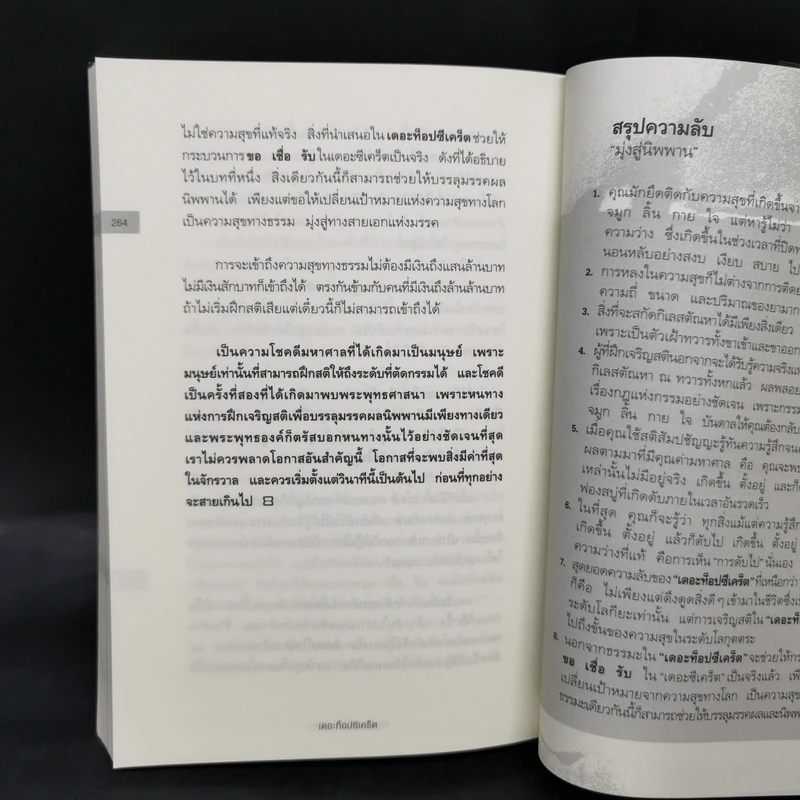 ไม่ใช่ความสุขที่แท้จริง สิ่งที่นำเสนอใน เดอะท็อปซีเคร็ต ช่วยให้
กระบวนการ ขอ เชื่อ รับ ในเดอะซีเคร็ตเป็นจริง ดังที่ได้อธิบาย
ไว้ในบทที่หนึ่ง สิ่งเดียวกันนี้ก็สามารถช่วยให้บรรลุมรรคผล
นิพพานได้ เพียงแต่ขอให้เปลี่ยนเป้าหมายแห่งความสุขทางโลก
264
เป็นความสุขทางธรรม มุ่งสู่ทางสายเอกแห่งมรรค
การจะเข้าถึงความสุขทางธรรมไม่ต้องมีเงินถึงแสนล้านบาท
ไม่มีเงินสักบาทก็เข้าถึงได้ ตรงกันข้ามกับคนที่มีเงินถึงล้านล้านบาท
ถ้าไม่เริ่มฝึกสติเสียแต่เดี๋ยวนี้ก็ไม่สามารถเข้าถึงได้
เป็นความโชคดีมหาศาลที่ได้เกิดมาเป็นมนุษย์ เพราะ
มนุษย์เท่านั้นที่สามารถฝึกสติให้ถึงระดับที่ตัดกรรมได้ และโชคดี
เป็นครั้งที่สองที่ได้เกิดมาพบพระพุทธศาสนา เพราะหนทาง
แห่งการฝึกเจริญสติเพื่อบรรลุมรรคผลนิพพานมีเพียงทางเดียว
และพระพุทธองค์ก็ตรัสบอกหนทางนั้นไว้อย่างชัดเจนที่สุด
เราไม่ควรพลาดโอกาสอันสำคัญนี้ โอกาสที่จะพบสิ่งมีค่าที่สุด
ในจักรวาล และควรเริ่มตั้งแต่วินาทีนี้เป็นต้นไป ก่อนที่ทุกอย่าง
จะสายเกินไป
เดอะท็อปซีเคร็ต
สรุปความลับ
“มุ่งสู่นิพพาน”
1. คุณมักยึดติดกับความสุขที่เกิดขึ้นจา
จมูก ลิ้น กาย ใจ แต่หารู้ไม่ว่า
ความว่าง ซึ่งเกิดขึ้นในช่วงเวลาที่ปิดท
นอนหลับอย่างสงบ เงียบ สบาย ไป
2. การหลงในความสุขก็ไม่ต่างจากการติดย
ความถี่ ขนาด และปริมาณของยามาก
3. สิ่งที่จะสกัดกิเลสตัณหาได้มีเพียงสิ่งเดียว
เพราะเป็นตัวเฝ้าทวารทั้งขาเข้าและขาออก
4. ผู้ที่ฝึกเจริญสตินอกจากจะได้รับรู้ความจริงแห
กิเลสตัณหา ณ ทวารทั้งหกแล้ว ผลพลอย
เรื่องกฎแห่งกรรมอย่างชัดเจน เพราะกรรม
จมูก ลิ้น กาย ใจ บันดาลให้คุณต้องกลับ
5. เมื่อคุณใช้สติสัมปชัญญะรู้ทันความรู้สึกจน
ผลตามมาที่มีคุณค่ามหาศาล คือ คุณจะพ
เหล่านั้นไม่มีอยู่จริง เกิดขึ้น ตั้งอยู่ และก็ด
ฟองสบู่ที่เกิดดับภายในเวลาอันรวดเร็ว
6. ในที่สุด คุณก็จะรู้ว่า ทุกสิ่งแม้แต่ความรู้สึก
เกิดขึ้น ตั้งอยู่ แล้วก็ดับไป เกิดขึ้น ตั้งอยู่
ความว่างที่แท้ คือการเห็น “การดับไป” นั่นเอง
7. สุดยอดความลับของ “เดอะท็อปซีเคร็ต” ที่เหนือกว่า
ก็คือ ไม่เพียงแต่ดึงดูดสิ่งดี ๆ เข้ามาในชีวิตซึ่งเ
ระดับโลกียะเท่านั้น แต่การเจริญสติใน “เดอะท็
ไปถึงขั้นของความสุขในระดับโลกุตตระ
8. นอกจากธรรมะใน “เดอะท็อปซีเคร็ต” จะช่วยให้กร
ขอ เชื่อ รับ ใน “เดอะซีเคร็ต” เป็นจริงแล้ว เพี
เปลี่ยนเป้าหมายจากความสุขทางโลก เป็นความสุข
ธรรมะเดียวกันนี้ก็สามารถช่วยให้บรรลุมรรคผลและนิพพ